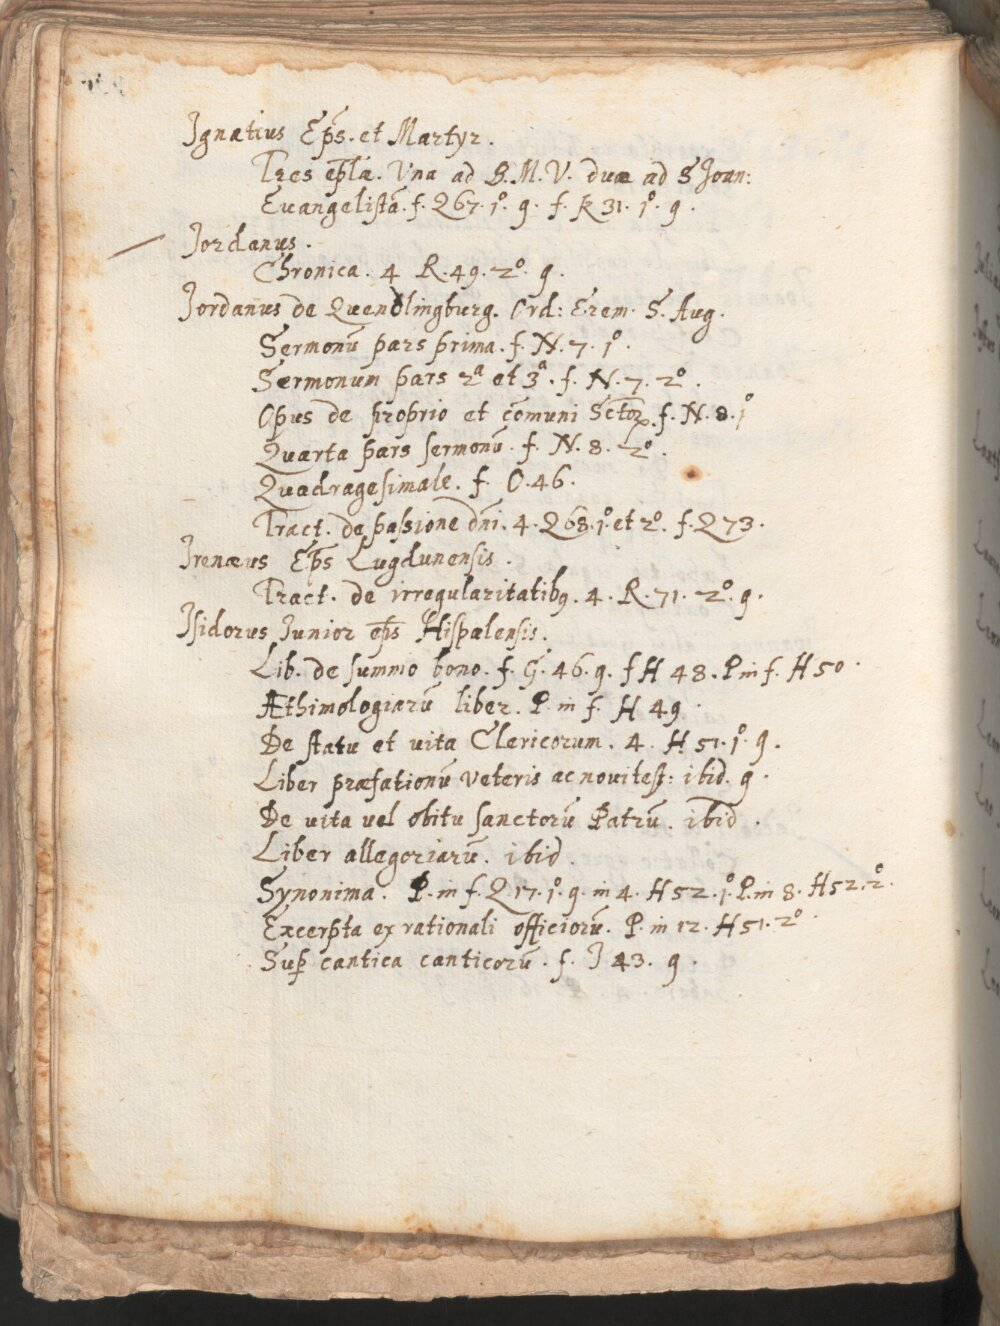 Ignatius Ep̃s. et Martyr.
Tres ep̃læ. Una ad B.M.V. duæ ad S Joan:
Euangelistã. f. Q67. 1º. g. f. K 31. 1º. g.
Jordanus.
Chronica. 4 R. 49. 2º. g.
Jordanus de Quendlingburg. Ord: Erem. S. Aug.
Sermonũ pars prima. f. N. 7. 1º.
Sermonum pars 2ª et 3ª. f. N. 7. 2º.
Opus de proprio et cõmuni Sctoꝝ. f. N. 8. 1º
Quarta pars sermonũ. f. N. 8. 2º.
Quadragesimale. f. O. 46.
Tract. de passione dñi. 4. Q68. 1º et 2º. f. Q73.
Irenæus Ep̃s Lugdunensis.
Tract. de irregularitatibꝫ. 4. R. 71. 2º. g.
Isidorus Junior ep̃s Hispalensis.
Lib. de summo bono. f. G. 46. g. f H 48. P. in f. H 50.
Æthimologiarũ liber. P. in f. H 49.
De statu et uita Clericorum. 4. H 51. 1º. g.
Liber præfationũ Veteris ac noui test: ibid. g.
De uita uel obitu sanctorũ Patrũ. ibid.
Liber allegoriarũ. ibid.
Synonima. P. in f. Q. 17. 1º. g. in 4. H 52. 1º. P. in 8. H 52. 2º.
Excerpta ex rationali officiorũ. P. in 12. H 51. 2º.
Sup̱ cantica canticorũ. f. J 43. g.